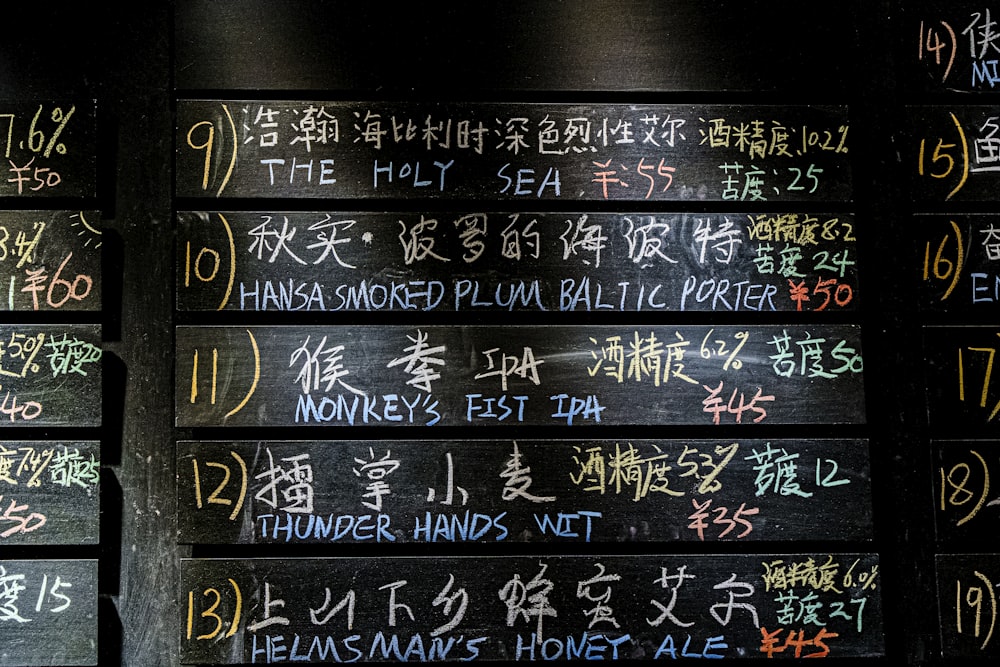 7.6%
¥50
¥60
5.0% 苦度20
苦度25
度 15
9) 浩瀚 海比利时深色烈性艾尔 酒精度:10.2%
THE HOLY SEA ¥:55 苦度:25
10) 秋实·波罗的海波特 酒精度8.2
苦度 24
HANSA SMOKED PLUM BALTIC PORTER ¥50
11) 猴拳 IPA 酒精度6.2% 苦度50
MONKEY'S FIST IPA ¥45
12) 擂掌小麦 酒精度5.3% 苦度12
THUNDER HANDS WIT ¥35
13) 上山下乡 蜂蜜艾尔 酒精度6.0%
苦度27
HELMSMAN'S HONEY ALE ¥45
14) 侠
MI
15)
16)
17)
18)
19)